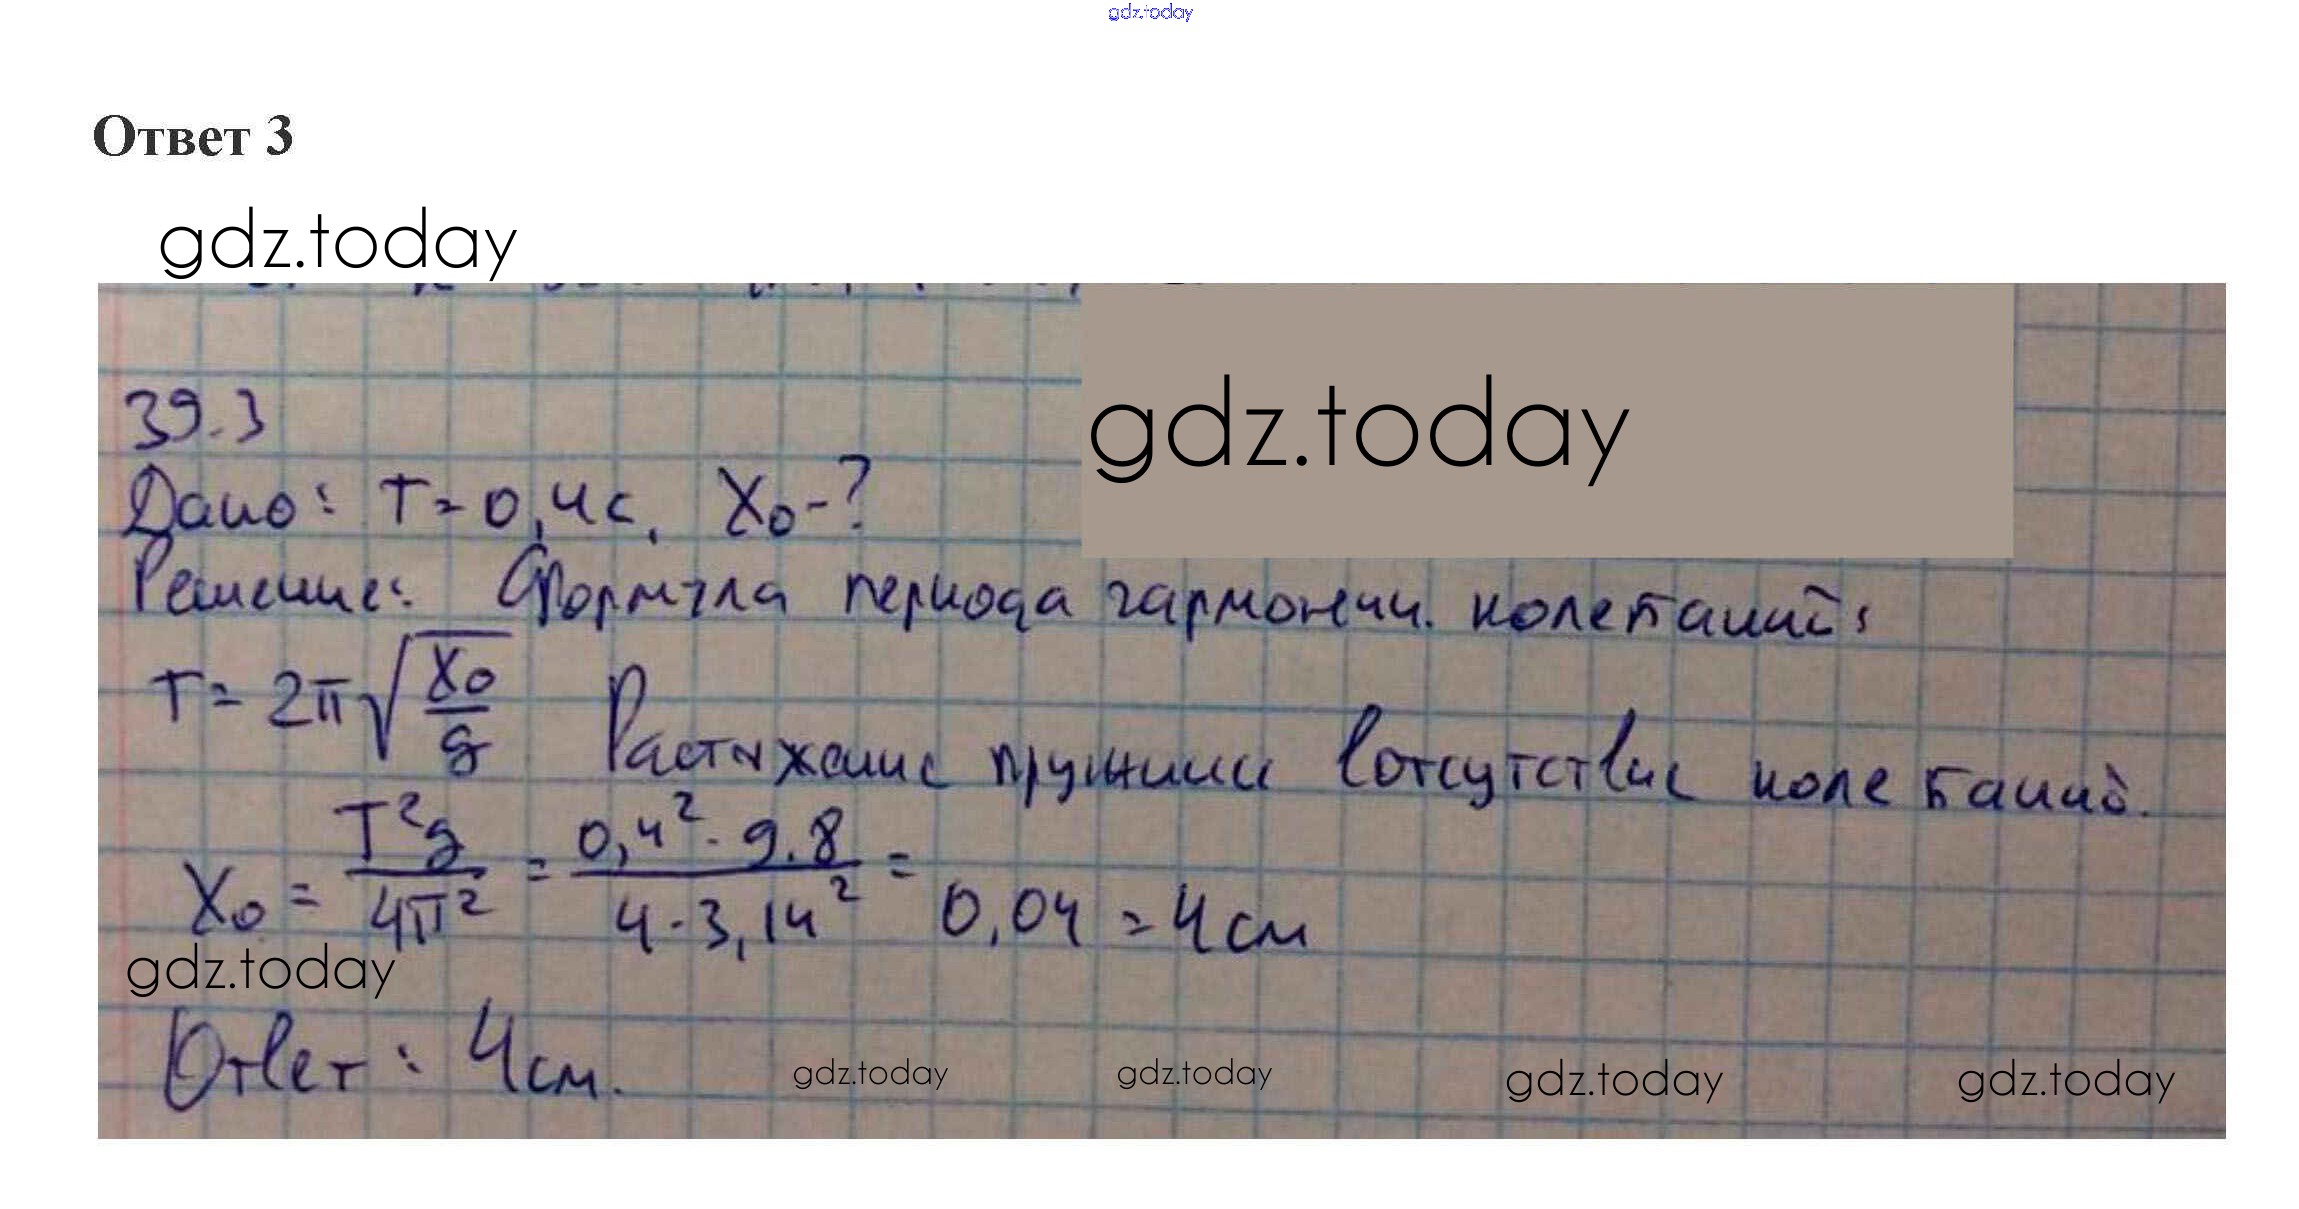 gdz.today
Ответ 3
gdz.today
gdz.today
39.3
Дано: T = 0,4с, X₀ - ?
Решение: Формула периода гармонич. колебаний:
T = 2π√(X₀/g) Растяжение пружины вотсутствие колебаний.
X₀ = T²g/4π² = 0,4² · 9.8/4 · 3,14² = 0,04 = 4см
gdz.today
Ответ: 4см.
gdz.today gdz.today gdz.today gdz.today